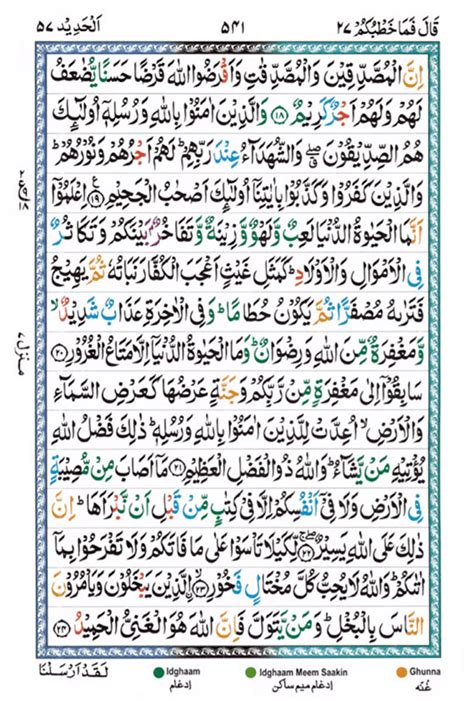 قَالَ فَمَا خَطْبُكُمْ ٢٧ ٥٤١ اَلْحَدِيْد ٥٧
اِنَّ الْمُصَّدِّقِيْنَ وَالْمُصَّدِّقٰتِ وَاَقْرَضُوا اللّٰهَ قَرْضًا حَسَنًا يُّضٰعَفُ
لَهُمْ وَلَهُمْ اَجْرٌ كَرِيْمٌ ﴿١٨﴾ وَالَّذِيْنَ اٰمَنُوْا بِاللّٰهِ وَرُسُلِهٖٓ اُولٰٓئِكَ
هُمُ الصِّدِّيْقُوْنَ ۖ وَالشُّهَدَآءُ عِنْدَ رَبِّهِمْ ؕ لَهُمْ اَجْرُهُمْ وَنُوْرُهُمْ ؕ
وَالَّذِيْنَ كَفَرُوْا وَكَذَّبُوْا بِاٰيٰتِنَآ اُولٰٓئِكَ اَصْحٰبُ الْجَحِيْمِ ﴿١٩﴾ اِعْلَمُوْٓا
اَنَّمَا الْحَيٰوةُ الدُّنْيَا لَعِبٌ وَّلَهْوٌ وَّزِيْنَةٌ وَّتَفَاخُرٌۢ بَيْنَكُمْ وَتَكَاثُرٌ
فِى الْاَمْوَالِ وَالْاَوْلَادِ ؕ كَمَثَلِ غَيْثٍ اَعْجَبَ الْكُفَّارَ نَبَاتُهٗ ثُمَّ يَهِيْجُ
فَتَرٰىهُ مُصْفَرًّا ثُمَّ يَكُوْنُ حُطَامًا ؕ وَفِى الْاٰخِرَةِ عَذَابٌ شَدِيْدٌ ۙ
وَّمَغْفِرَةٌ مِّنَ اللّٰهِ وَرِضْوَانٌ ؕ وَمَا الْحَيٰوةُ الدُّنْيَآ اِلَّا مَتَاعُ الْغُرُوْرِ ﴿٢٠﴾
سَابِقُوْٓا اِلٰى مَغْفِرَةٍ مِّنْ رَّبِّكُمْ وَجَنَّةٍ عَرْضُهَا كَعَرْضِ السَّمَآءِ
وَالْاَرْضِ ۙ اُعِدَّتْ لِلَّذِيْنَ اٰمَنُوْا بِاللّٰهِ وَرُسُلِهٖ ؕ ذٰلِكَ فَضْلُ اللّٰهِ
يُؤْتِيْهِ مَنْ يَّشَآءُ ؕ وَاللّٰهُ ذُو الْفَضْلِ الْعَظِيْمِ ﴿٢١﴾ مَآ اَصَابَ مِنْ مُّصِيْبَةٍ
فِى الْاَرْضِ وَلَا فِىْٓ اَنْفُسِكُمْ اِلَّا فِىْ كِتٰبٍ مِّنْ قَبْلِ اَنْ نَّبْرَاَهَا ؕ اِنَّ
ذٰلِكَ عَلَى اللّٰهِ يَسِيْرٌ ﴿٢٢﴾ لِّكَيْلَا تَاْسَوْا عَلٰى مَا فَاتَكُمْ وَلَا تَفْرَحُوْا بِمَآ
اٰتٰىكُمْ ؕ وَاللّٰهُ لَا يُحِبُّ كُلَّ مُخْتَالٍ فَخُوْرِ ﴿٢٣﴾ اِلَّذِيْنَ يَبْخَلُوْنَ وَيَاْمُرُوْنَ
النَّاسَ بِالْبُخْلِ ؕ وَمَنْ يَّتَوَلَّ فَاِنَّ اللّٰهَ هُوَ الْغَنِىُّ الْحَمِيْدُ ﴿٢٤﴾
لَقَدْ اَرْسَلْنَا
Idghaam Idghaam Meem Saakin Ghunna
اِدغام اِدغام میم ساکن غُنّه
منزل ٧